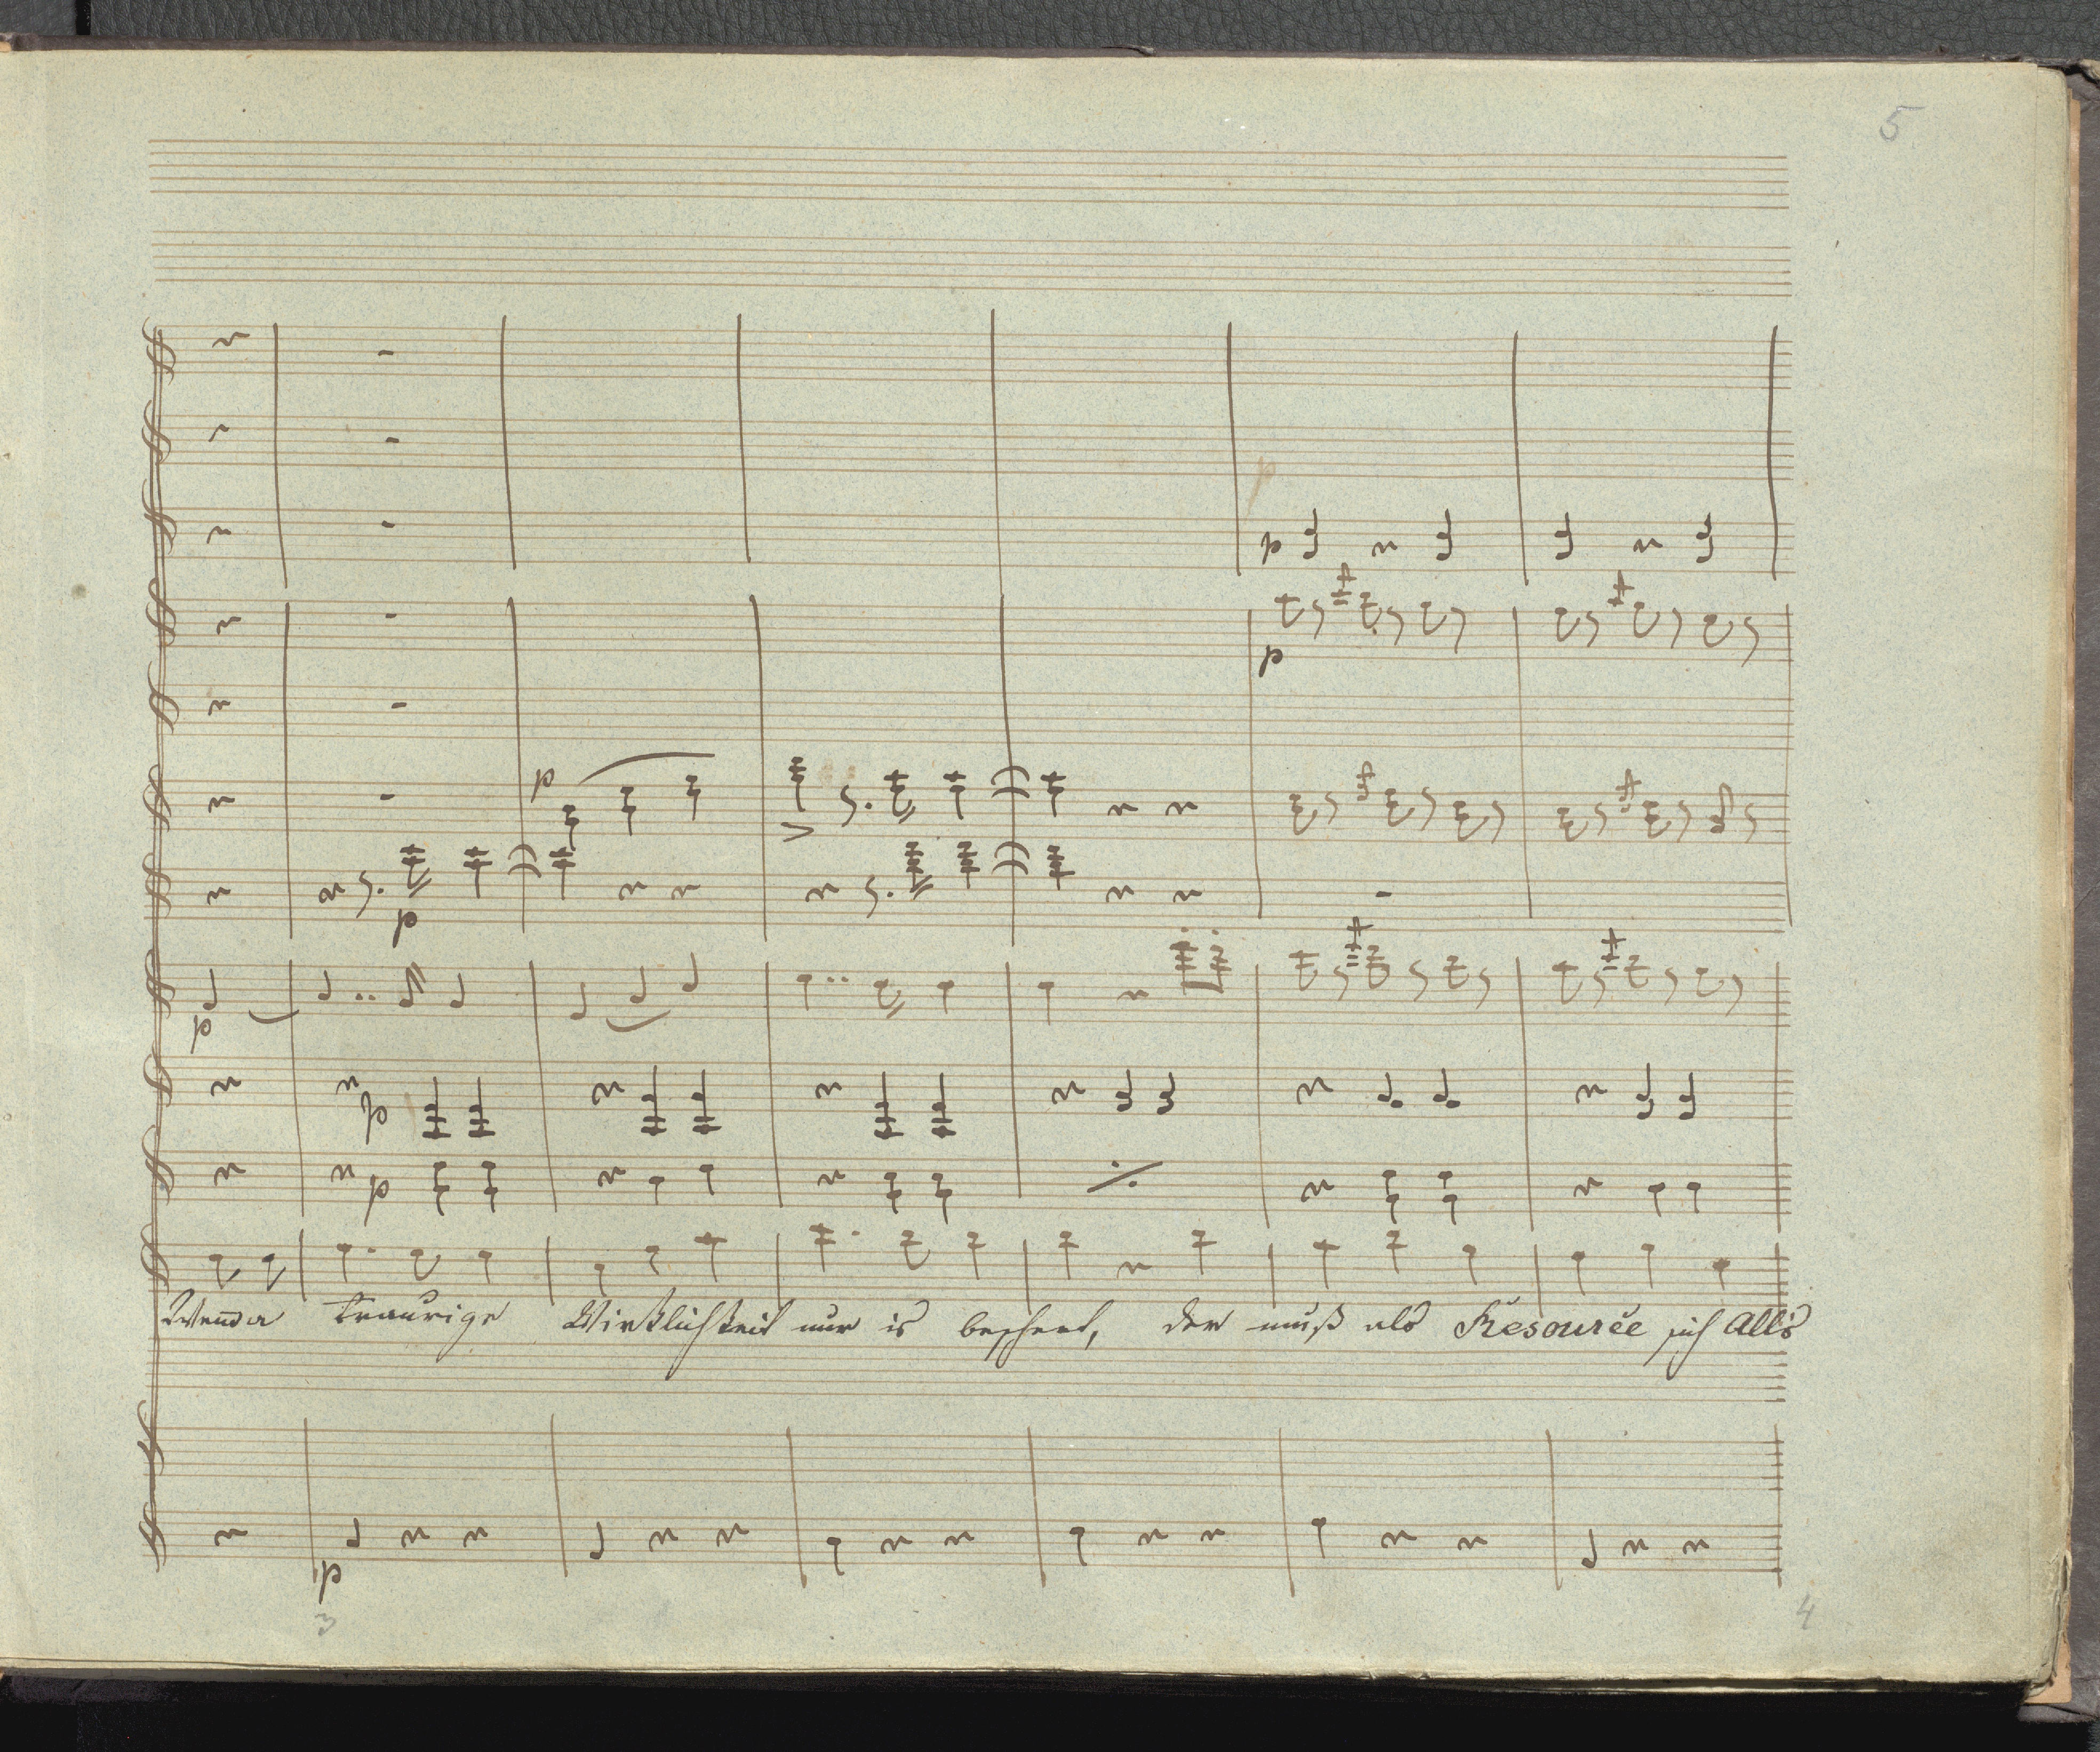 5
p
p
p
p
p
p
p
p
Wenn a traurige Wirklichkeit nur is beschert, der muß als Resourçe sich All's
p
3 4